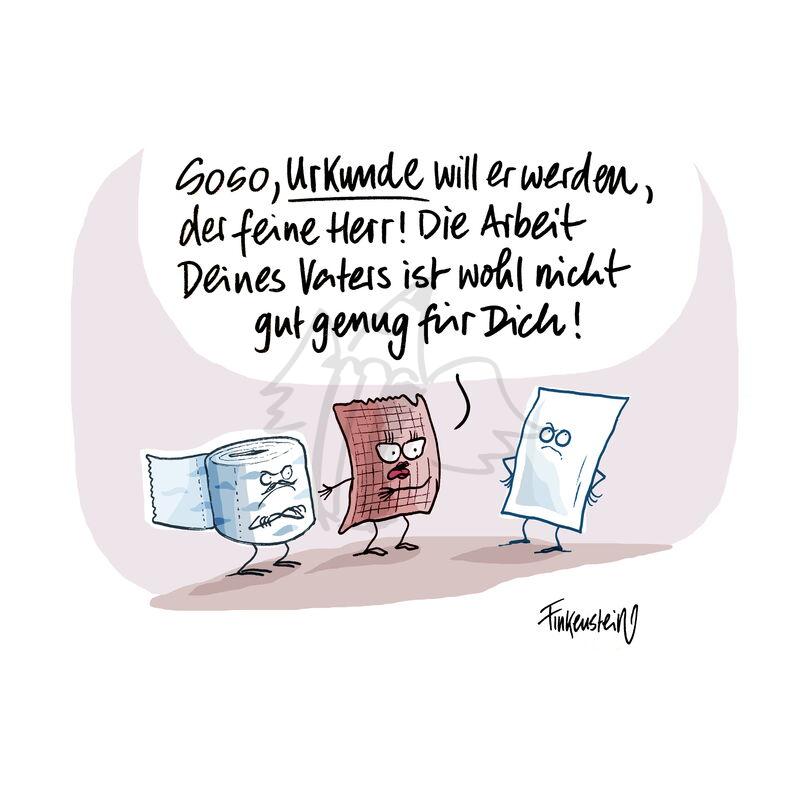 Soso, Urkunde will er werden,
der feine Herr! Die Arbeit
Deines Vaters ist wohl nicht
gut genug für Dich!
Finkenstein